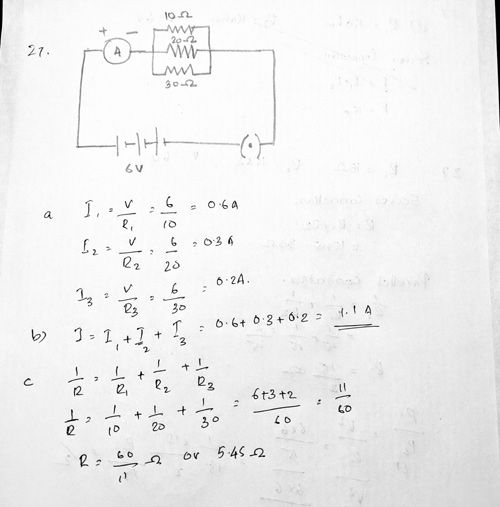 10Ω
+ A −
20Ω
27.
30Ω
6V
a I₁ = V/R₁ = 6/10 = 0.6A
I₂ = V/R₂ = 6/20 = 0.3A
I₃ = V/R₃ = 6/30 = 0.2A.
b) I = I₁ + I₂ + I₃ = 0.6 + 0.3 + 0.2 = 1.1 A
c 1/R = 1/R₁ + 1/R₂ + 1/R₃
1/R = 1/10 + 1/20 + 1/30 = 6+3+2/60 = 11/60
R = 60/11 Ω or 5.45 Ω